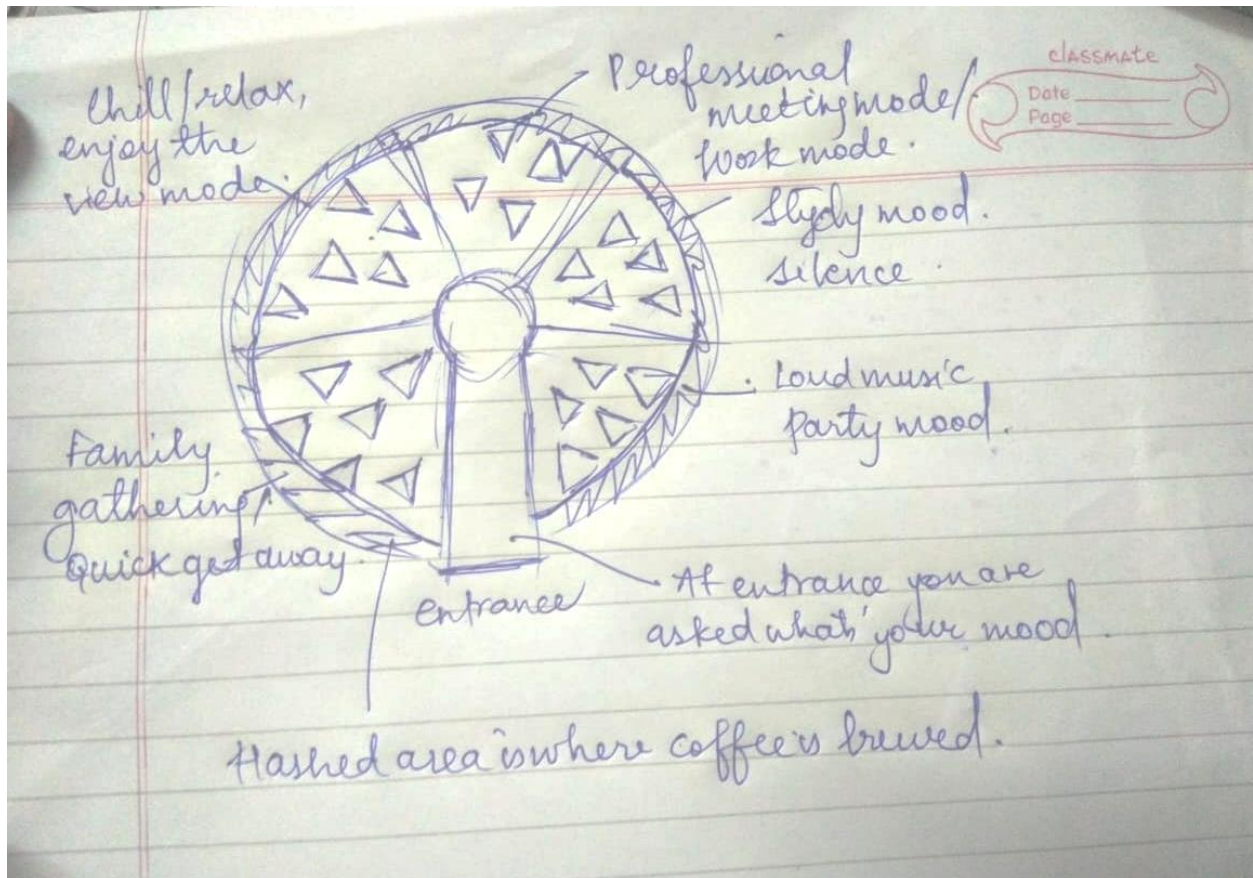 Chill/relax,
enjoy the
view mode.
Professional
meeting mode/
Work mode.
classmate
Date
Page
Stydy mood.
silence.
Loud music
party mood.
Family
gathering/
Quick get away.
entrance
At entrance you are
asked what's your mood.
Hashed area is where coffee is brewed.